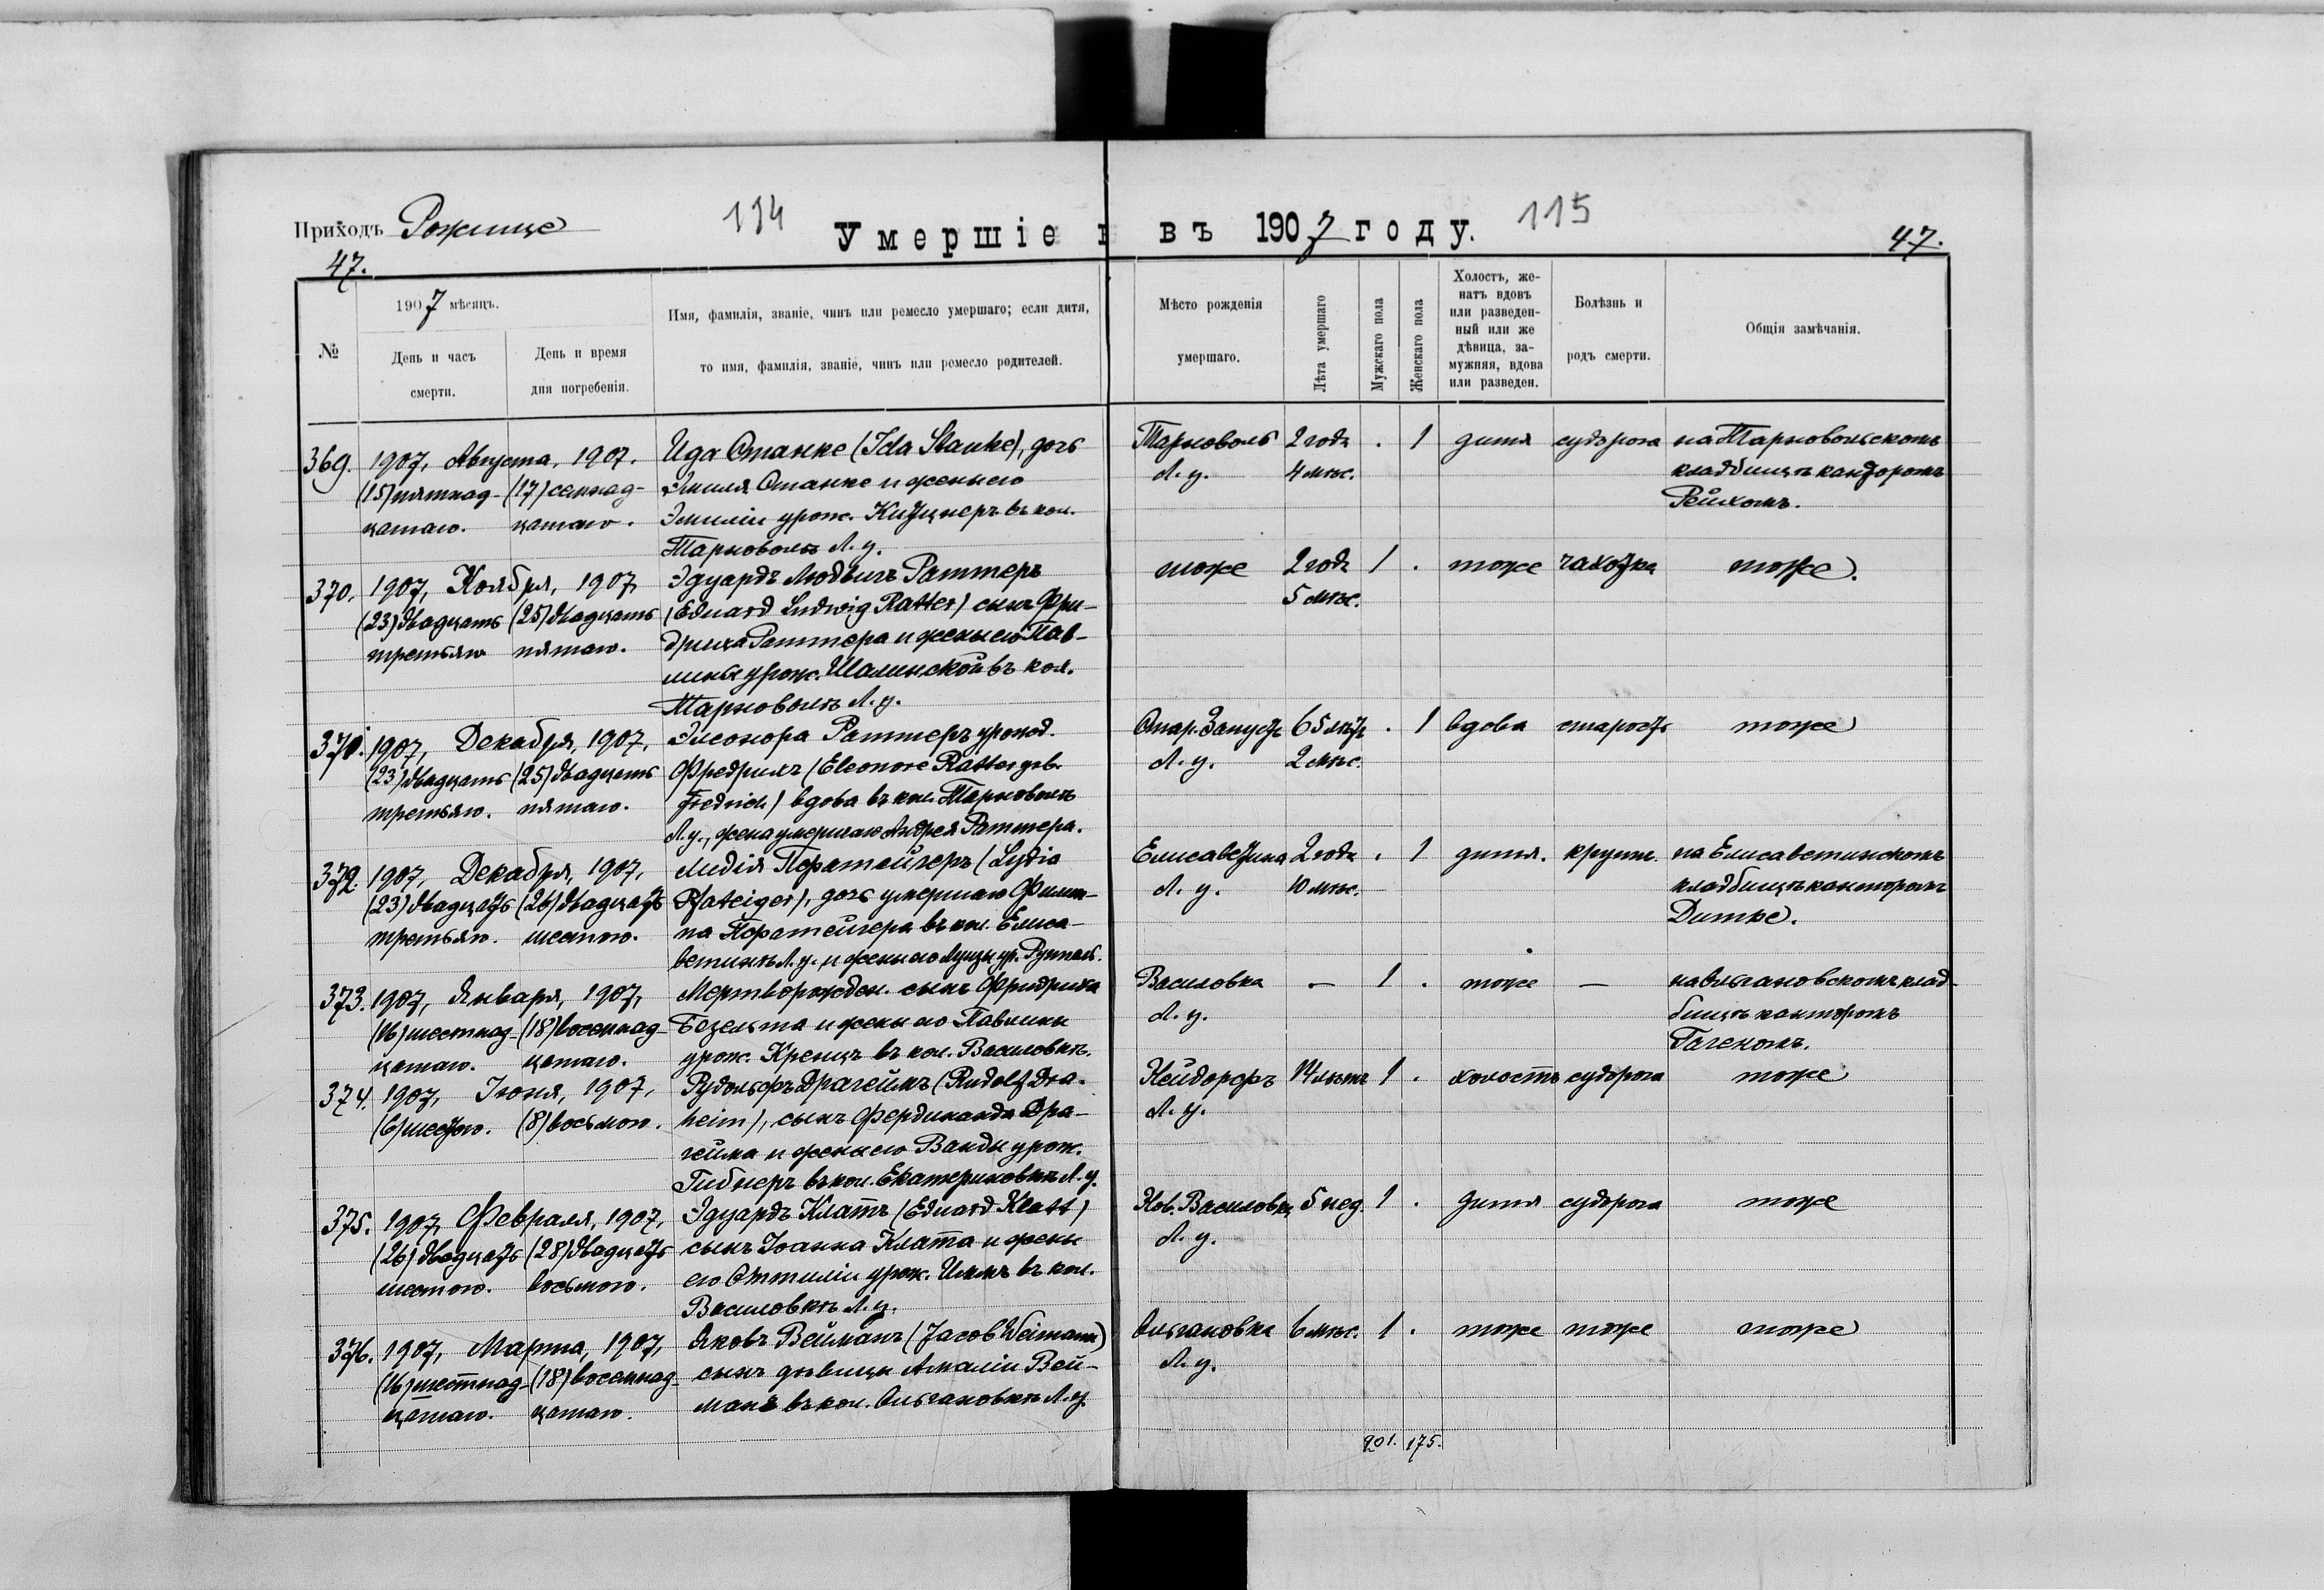 Приходъ Рожище
114
Умершіе въ 1907 году.
115
47.
47.
№
1907 мѣсяцъ.
День и часъ смерти.
День и время дня погребенія.
Имя, фамилія, званіе, чинъ или ремесло умершаго; если дитя,
то имя, фамилія, званіе, чинъ или ремесло родителей.
Мѣсто рожденія умершаго.
Лѣта умершаго
Мужскаго пола
Женскаго пола
Холостъ, же-
натъ вдовъ
или разведен-
ный или же
дѣвица, за-
мужняя, вдова
или разведен.
Болѣзнь и
родъ смерти.
Общія замѣчанія.
369. 1907, Августа, 1907. Ида Станке (Ida Stanke), дочь Тарноволь 2 года . 1 дитя судорога на Тарновольскомъ
(15) пятнад- (17) семнад- Эмиля Станке и жены его Л. у. 4 мѣс. кладбищѣ канторомъ
цатаго. цатаго. Эмиліи урож. въ кол. Рейхомъ.
Тарноволѣ Л. у.
370. 1907, Ноября, 1907, Эдуардъ Людвигъ Раттеръ тоже 2 года 1 . тоже чахотка тоже.
(23) двадцать (25) двадцать (Eduard Ludwig Ratter) сынъ Фри- 5 мѣс.
третьяго пятаго. дриха Раттера и жены его Пав-
лины урож. Шалинской въ кол.
Тарноволѣ Л. у.
371. 1907, Декабря, 1907, Элеонора Раттеръ урожд. Стар. Запустъ 65 лѣтъ . 1 вдова старость тоже
(23) двадцать (25) двадцать Фредрихъ (Eleonore Ratter geb. Л. у. 2 мѣс.
третьяго. пятаго. Fredrich) вдова въ кол. Тарноволѣ
Л. у., жена умершаго Андрея Раттера.
372. 1907, Декабря, 1907, Лидія Пфатейгеръ (Lydia Елисаветина 2 года . 1 дитя. крупъ. на Елисаветинскомъ
(23) двадцать (26) двадцать Pfateiger), дочь умершаго Филип- Л. у. 10 мѣс. кладбищѣ канторомъ
третьяго. шестого. па Пфатейгера въ кол. Елиса- Дитке.
ветинѣ Л. у. и жены его
373. 1907, Января, 1907, Мертворожден. сынъ Фридриха Василовка — 1 . тоже — на Ольгановскомъ клад-
(16) шестнад- (18) восемнад- Безельта и жены его Павлины Л. у. бищѣ канторомъ
цатаго. цатаго. урож. Кренцъ въ кол. Василовкѣ. Гагеномъ.
374. 1907, Іюня, 1907, Рудольфъ Драгеймъ (Rudolf Dra- Нейдорфъ 14 лѣтъ 1 . холостъ судорога тоже
(6) шестого. (8) восьмого. heim), сынъ Фердинанда Дра- Л. у.
гейма и жены его Ванды урож.
Гибнеръ въ кол. Екатериновкѣ Л. у.
375. 1907, Февраля, 1907, Эдуардъ Клатъ (Eduard Klatt) Нов. Василовка 5 нед. 1 . дитя судорога тоже
(26) двадцать (28) двадцать сынъ Іоанна Клата и жены Л. у.
шестого. восьмого. его Оттиліи урож. въ кол.
Василовкѣ Л. у.
376. 1907, Марта, 1907, Яковъ Вейманъ (Jacob Weimann) Ольгановка 6 мѣс. 1 . тоже тоже тоже
(16) шестнад- (18) восемнад- сынъ дѣвицы Амаліи Вей- Л. у.
цатаго. цатаго. манъ въ кол. Ольгановкѣ Л. у.
201. 175.